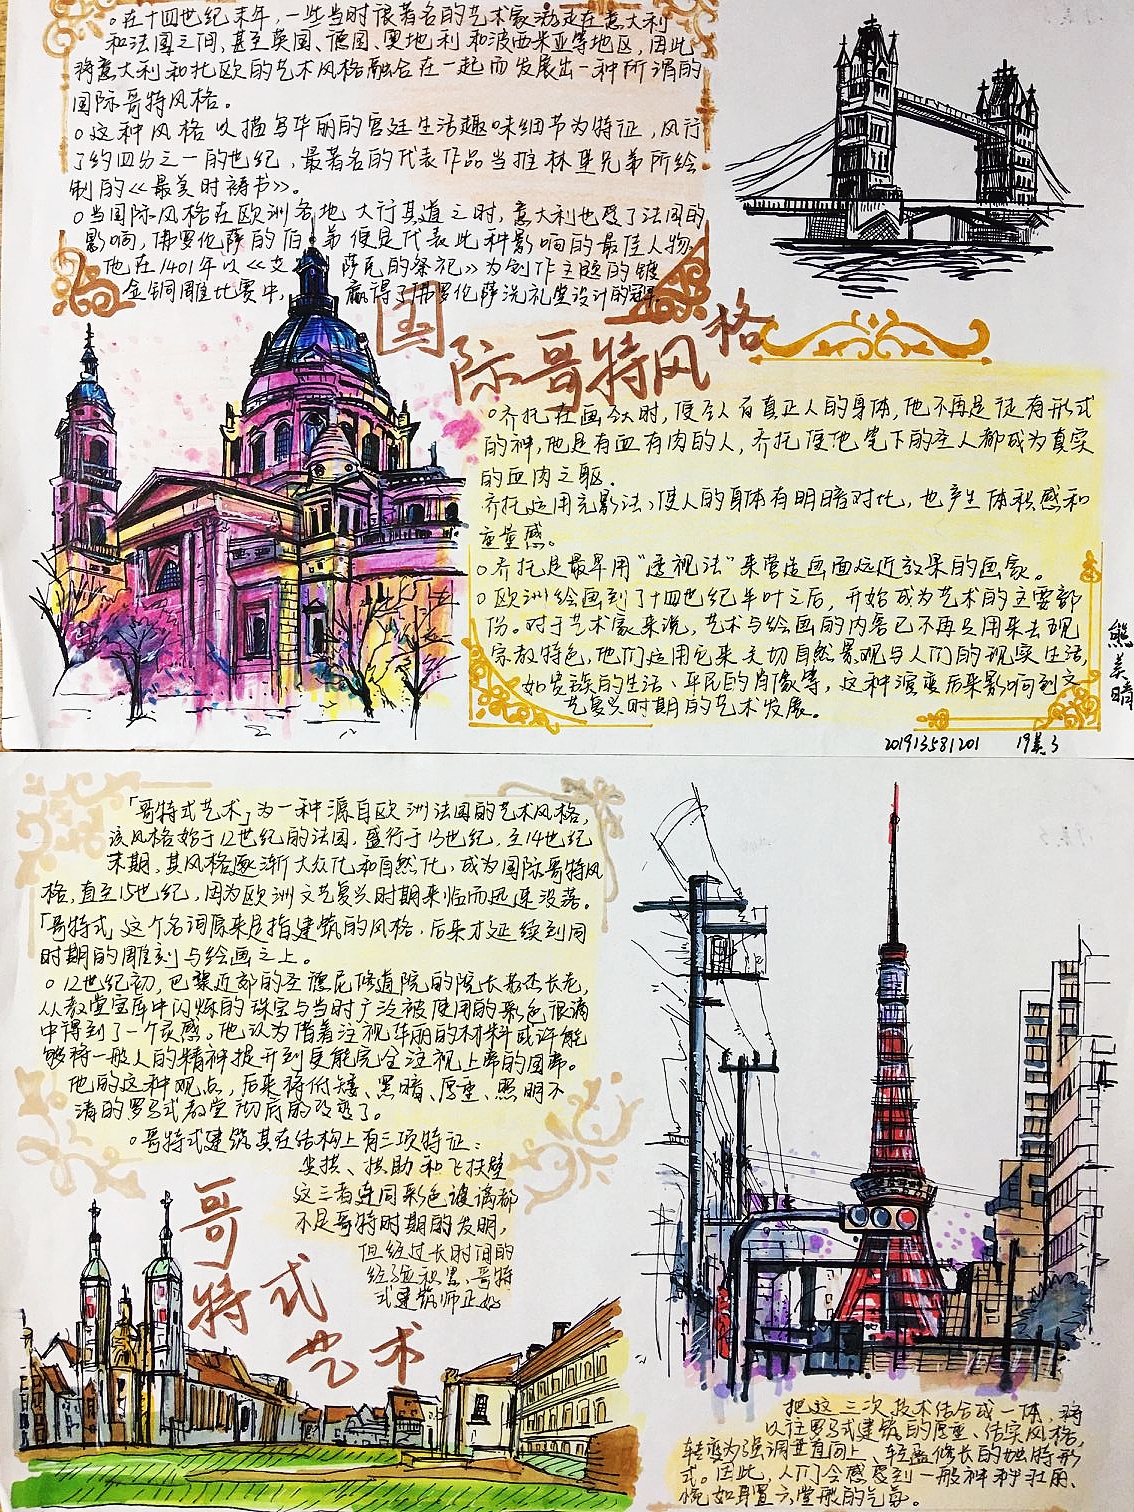 ○在十四世纪末年，一些当时很著名的艺术家游走在意大利
和法国之间，甚至英国、德国、奥地利和波西米亚等地区，因此
将意大利和北欧的艺术风格融合在一起而发展出一种所谓的
国际哥特风格。
○这种风格以描写华丽的宫廷生活趣味细节为特征，风行
了约四分之一的世纪，最著名的代表作品当推林堡兄弟所绘
制的《最美时祷书》。
○当国际风格在欧洲各地大行其道之时，意大利也受了法国的
影响，佛罗伦萨的 便是代表此种影响的最佳人物
他在1401年以《艾 萨克的祭祀》为创作主题的镀
金铜雕比赛中， 赢得了佛罗伦萨洗礼堂设计的冠军
国际哥特风格
○乔托在画圣人时，使圣人有真正人的身体，他不再是徒有形式
的神，他是有血有肉的人，乔托使他笔下的圣人都成为真实
的血肉之躯．
乔托运用光影法，使人的身体有明暗对比，也产生体积感和
重量感。
○乔托是最早用“透视法”来营造画面远近效果的画家。
○欧洲绘画到了十四世纪半叶之后，开始成为艺术的主要部
份。对于艺术家来说，艺术与绘画的内容已不再只用来去现
宗教特色，他们运用它来关切自然景观与人们的现实生活，
如贵族的生活、平民的肖像等，这种演变后来影响到文
艺复兴时期的艺术发展。
熊美晴
201913581201 19美3
「哥特式艺术」为一种源自欧洲法国的艺术风格，
该风格始于12世纪的法国，盛行于13世纪，至14世纪
末期，其风格逐渐大众化和自然化，成为国际哥特风
格，直至15世纪，因为欧洲文艺复兴时期来临而迅速没落。
「哥特式 这个名词原来是指建筑的风格，后来才延续到同
时期的雕刻与绘画之上。
○12世纪初，巴黎近郊的圣德尼修道院的院长苏杰长老，
从教堂宝库中闪烁的珠宝与当时广泛被使用的彩色玻璃
中得到了一个灵感。他认为借着注视华丽的材料或许能
够将一般人的精神提升到更能完全注视上帝的国第。
他的这种观点，后来将低矮、黑暗、厚重、照明不
清的罗马式教堂彻底的改变了。
○哥特式建筑其在结构上有三项特征：
尖拱、拱肋和飞扶壁
这三者连同彩色玻璃都
不是哥特时期的发明，
但经过长时间的
经验积累，哥特
式建筑师正好
哥特式艺术
把这三次技术结合成一体，将
以往罗马式建筑的厚重、结实风格，
转变为强调垂直向上、轻盈修长的独特形
式。因此，人们会感受到一般神神
恍如身置天堂般的气氛。